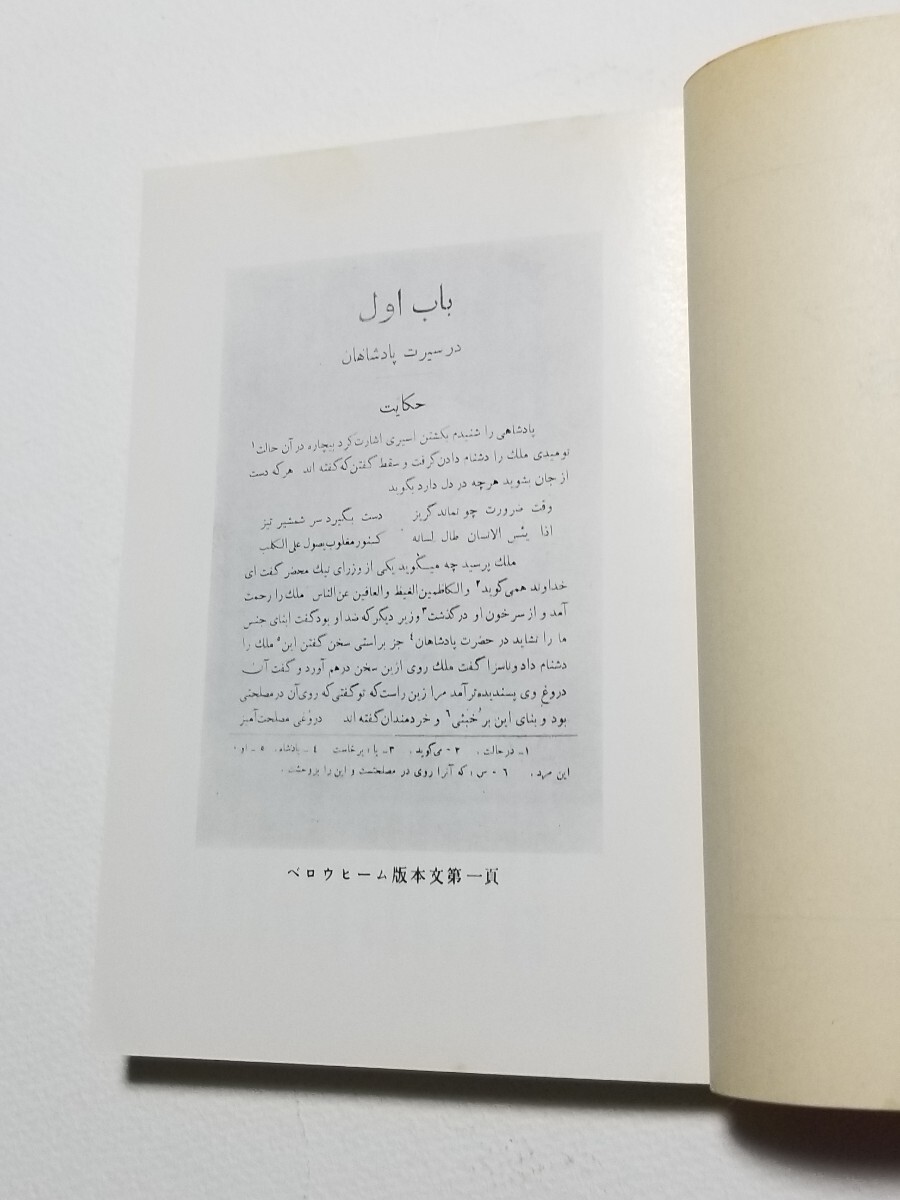 باب اول
در سیرت پادشاهان
حکایت
پادشاهی را شنیدم بکشتن اسیری اشارت کرد بیچاره در آن حالت۱
نومیدی ملک را دشنام دادن گرفت و سقط گفتن که گفته اند هر که دست
از جان بشوید هرچه در دل دارد بگوید
وقت ضرورت چو نماند گریز دست بگیرد سر شمشیر تیز
اذا یئس الانسان طال لسانه کسنور مغلوب یصول علی الکلب
ملک پرسید چه میگوید یکی از وزرای نیک محضر گفت ای
خداوند همی گوید۲ والکاظمین الغیظ والعافین عن الناس ملک را رحمت
آمد و از سر خون او درگذشت۳ وزیر دیگر که ضد او بود گفت ابنای جنس
ما را نشاید در حضرت پادشاهان۴ جز براستی سخن گفتن این۵ ملک را
دشنام داد و ناسزا گفت ملک روی ازین سخن درهم آورد و گفت آن
دروغ وی پسندیده تر آمد مرا زین راست که تو گفتی که روی آن در مصلحتی
بود و بنای این بر خُبثی۶ و خردمندان گفته اند دروغی مصلحت آمیز
۱- در حالت. ۲- می گوید. ۳- پا: برخاست ۴- پادشاه. ۵- او.
این مرد. ۶- س: که آنرا روی در مصلحتست و این را بر وحشت.
ベロウヒーム版本文第一頁